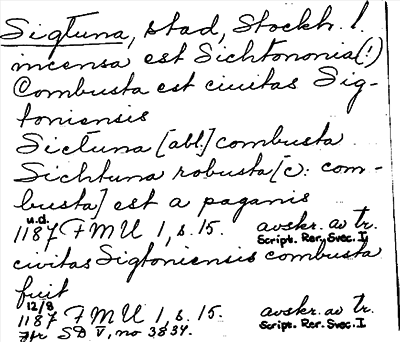 Sigtuna, stad, Stockh. l.
incensa est Sichtononia(!)
Combusta est ciuitas Sig-
toniensis
Sictuna [abl.] combusta
Sichtuna robusta [ɔ: com-
busta] est a paganis
u.d.
1187 FMU 1, s. 15. avskr. av tr.
Script. Rer. Svec. I
civitas Sigtoniensis combusta
fuit
12/8
1187 FMU 1, s. 15. avskr. av tr.
Script. Rer. Svec. I
Jfr SD V, no 3834.